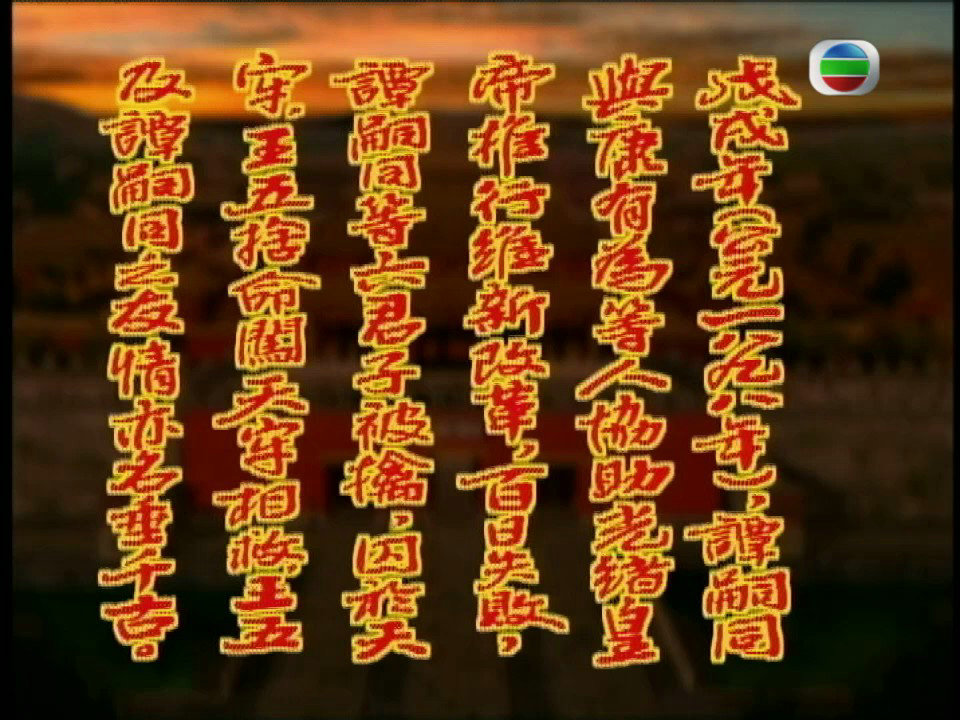 戊戌年(公元一八九八年)，譚嗣同
與康有為等人協助光緒皇
帝推行維新改革，百日失敗，
譚嗣同等六君子被擒，囚於天
穿，王五捨命闖天穿相救，王五
及譚嗣同之友情亦名垂千古。